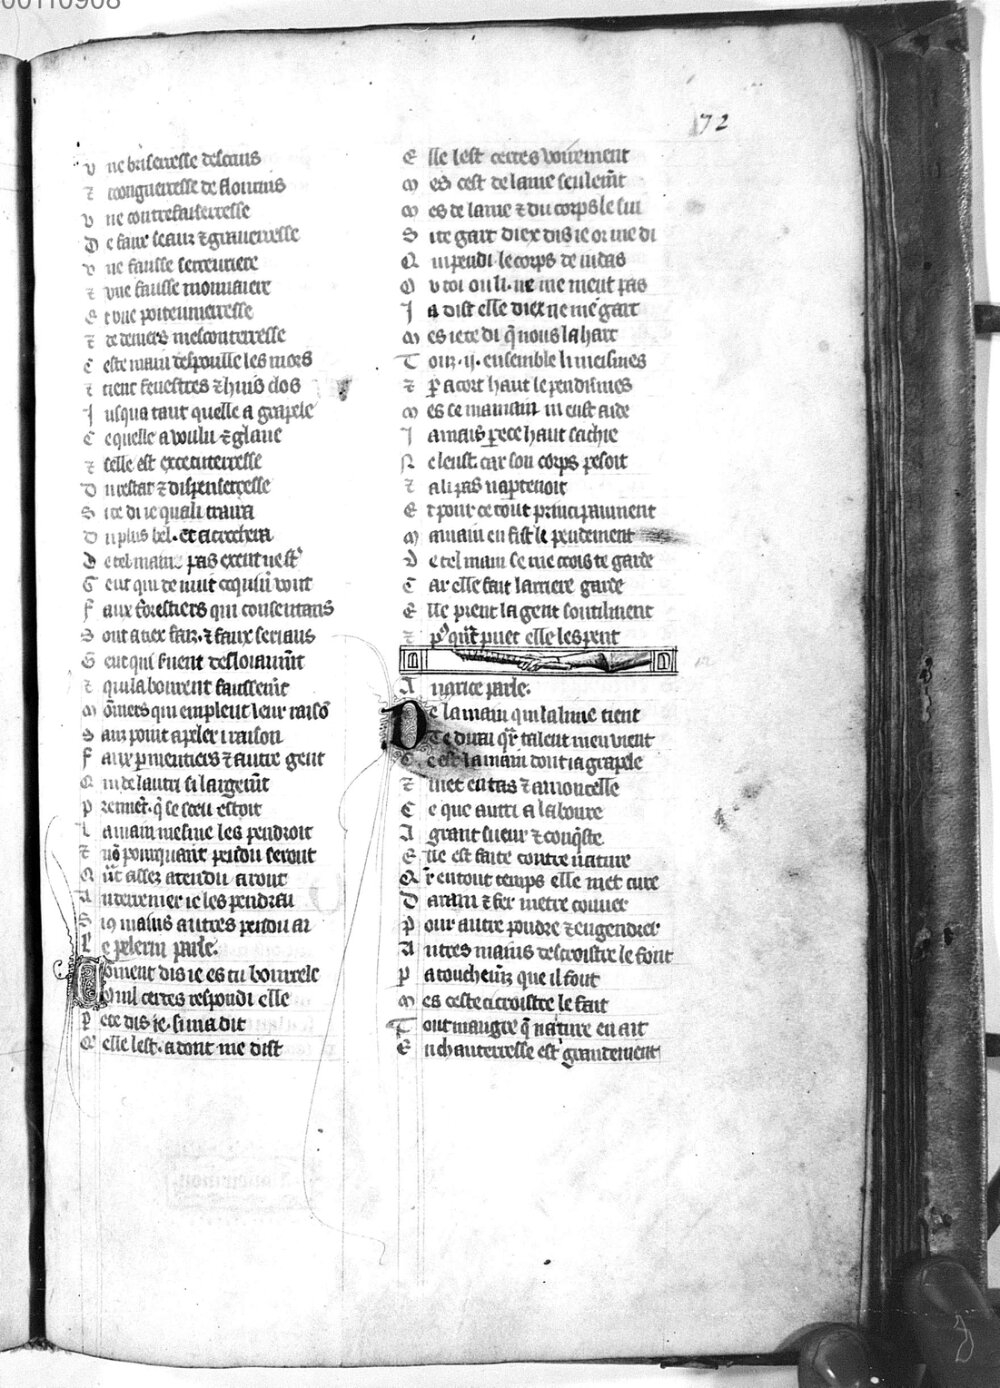 00110908
72
v ne briserresse descrins
⁊ rongnerresse de florins
v ne contrefaiserresse
D e faux seaux ⁊ graverresse
v ne fausse serreuriere
⁊ vne fausse monnaiere
E t vne
⁊ de deniers mesconterresse
C este main despoulle les mors
⁊ tient fenestres ⁊ huis clos
J usqua tant quelle a grapele
C e quelle a voulu ⁊ glane
⁊ celle est excecuterresse
D
S ire di ie quali traira
D u plus bel. et acrochera
D e tel main pas exent nest
C eut qui de nuit
F aux forestiers qui consentans
S ont avex faiz. ⁊ faux serians
C eut qui
⁊ qui labourent faussement
M oniers qui empleut leur
S anz point apeler raison
F aux parmentiers ⁊ autre gent
Q ui de lautri si largement
P rennent. que se seu estoit
L a main mesme les pendroit
⁊ non pourquant pendu seront
Q uant assez atendu aront
A u derrenier ie les pendrai
S i
Le pelerin parle.
Coment dis ie es tu bourrele
Ouil certes respondi elle
P ere dis ie. si ma dit
Q elle lest. adont me dist
E lle lest certes voirement
M es cest de lame seulement
M es de lame ⁊ du corps le sui
S ire gart diex dis ie or me di
Q ui pendi le corps de iudas
O u toi ou li. ne me ment pas
J a dist elle diex ne me gart
M es ie te di que nous la hart
T ouz .ij. ensemble li meismes
⁊ par acort haut le pendismes
M es ce ma main ni eust aide
J amais par ce haut sachie
N e leust. car son corps pesoit
⁊ a li pas napartenoit
E t pour ce tout principaument
M a main en fist le pendement
D e tel main se me crois te garde
C ar elle fait larriere garde
E lle prent la gent soutilment
⁊ puis quant puet elle les pent
Avarice parle.
De la main qui la lime tient
Te dirai quar talent men vient
C est la main dont ia grapele
⁊ met en tas ⁊ amoncelle
C e que autri a laboure
A grant sueur ⁊ conqste
E lle est faite contre nature
Q ar en tout temps elle met cure
D arain ⁊ fer metre couver
P our autre poudre ⁊ engendrer
A utres mains descroistre le font
P atoucheurz que il font
M es ceste acroistre le fait
T out maugre que nature en ait
E nchanterresse est grandement